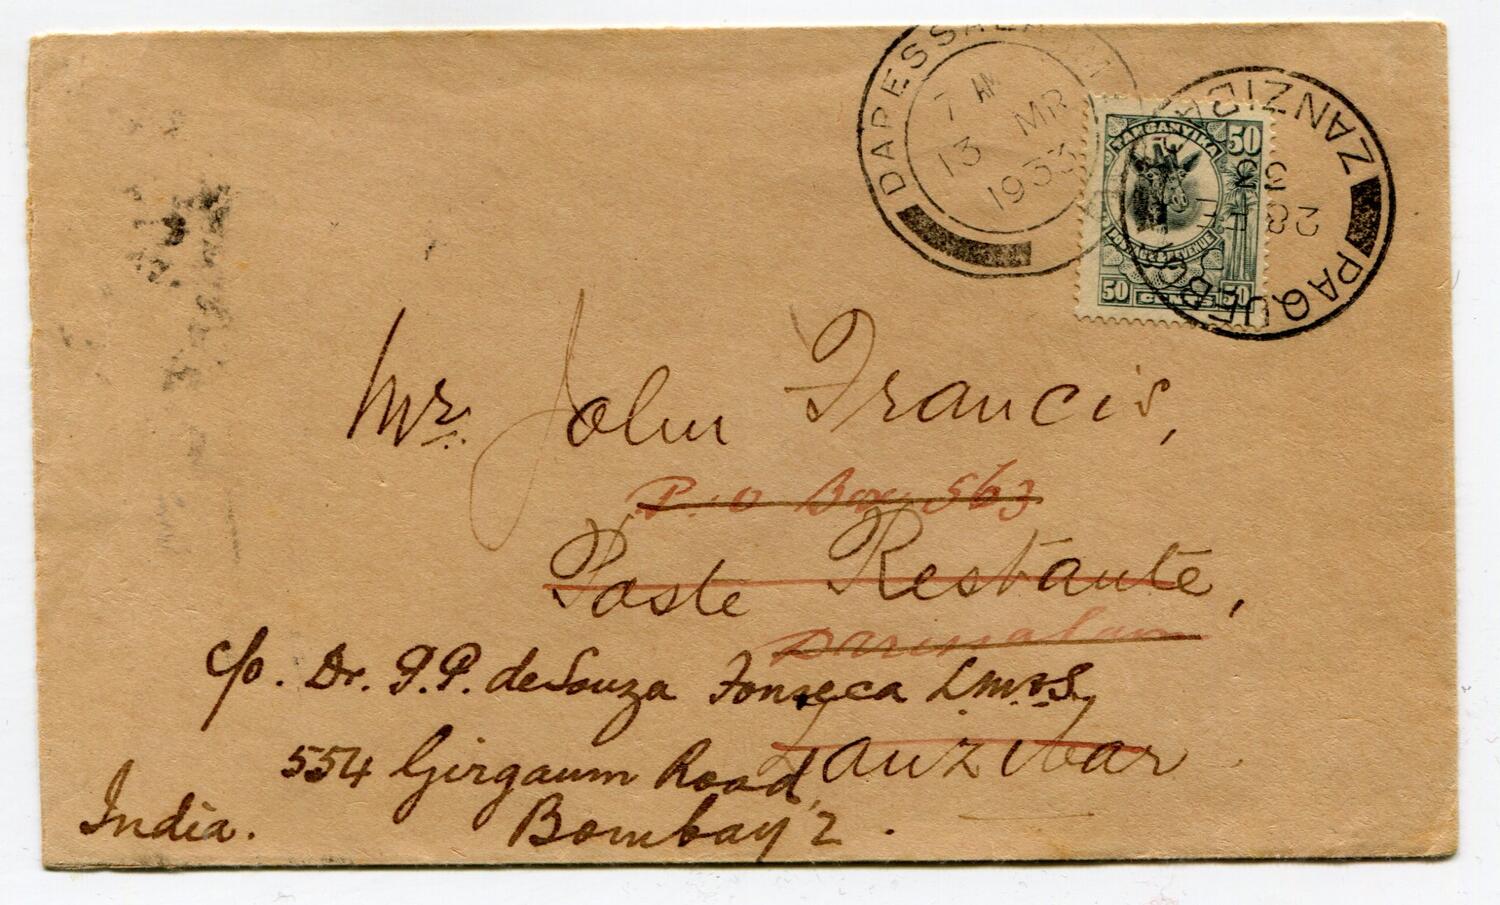 DARESSALAAM
7 AM
13 MR
1933
ZANZIBAR
28 FE
33
PAQUEBOT
TANGANYIKA
50
POSTAGE & REVENUE
50 CENTS 50
Mr. John Francis,
P.O Box 563
Poste Restante,
Daressalaam
c/o. Dr. P.P. deSouza Fonseca L.M.&S.
Zanzibar
554 Girgaum Road,
Bombay 2.
India.